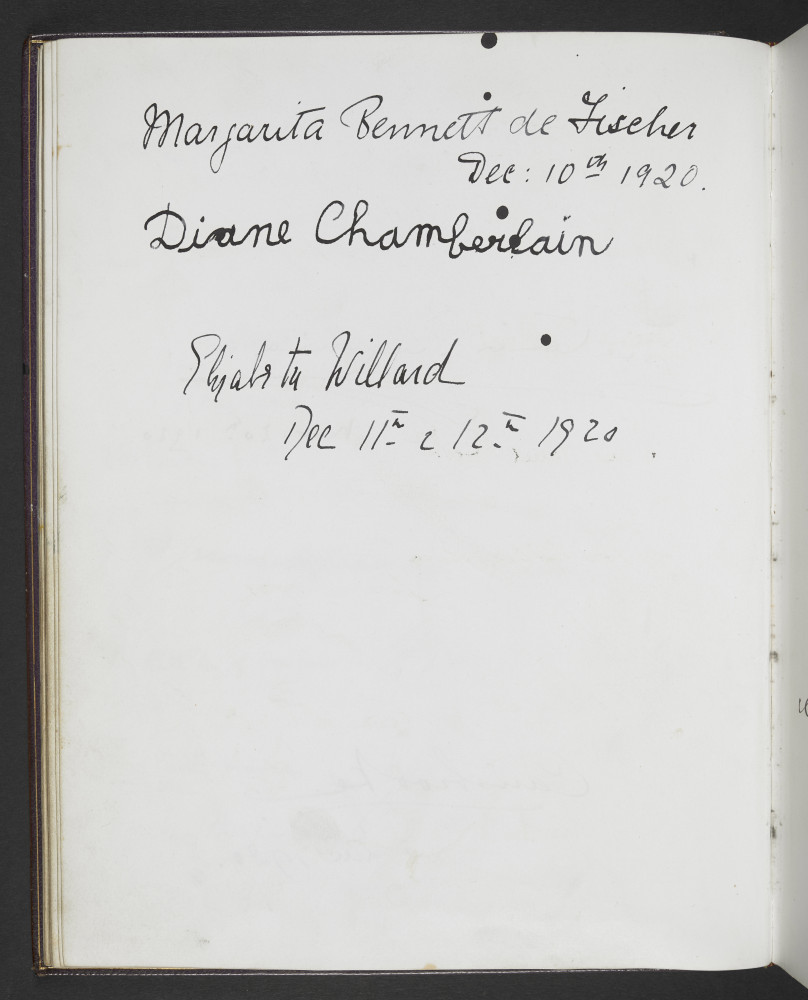 Margarita Bennett de Fischer
Dec: 10th 1920.
Diane Chamberlain
Elizabeth Willard
Dec 11th & 12th 1920.